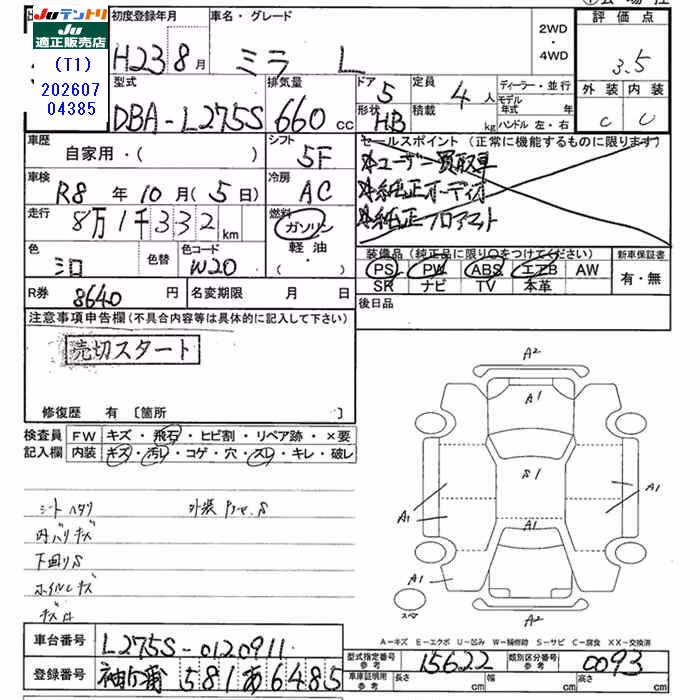 JUテントリ
JU
適正販売店
(T1)
202607
04385
初度登録年月
H23 8月
車名・グレード
ミラ L
2WD
・
4WD
評価点
3.5
外装 内装
C C
型式
DBA-L275S
排気量
660cc
ドア 5
形状 HB
定員 4人
積載 kg
ディーラー・並行
モデル年式 年
ハンドル 左・右
車歴
自家用・( )
シフト
5F
車検
R8年10月(5日)
冷房
AC
走行
8万1千332km
燃料
ガソリン
軽油
・
色
シロ
色替
色コード
W20
R券 8640円
名変期限 月 日
セールスポイント(正常に機能するものに限ります)
ユーザー買取車
純正オーディオ
純正フロアマット
装備品(純正品に限り○をつけてください)
PS PW ABS エアB AW
SR ナビ TV 本革
新車保証書
有・無
後日品
注意事項申告欄(不具合内容等は具体的に記入して下さい)
売切スタート
修復歴 有 〔箇所 〕
検査員記入欄
FW キズ・飛石・ヒビ割・リペア跡・×要
内装 キズ・汚レ・コゲ・穴・スレ・キレ・破レ
シートヘタリ
内バリキズ
下回りS
ホイルキズ
A2
A1
S1
A1
A1
A1
A1
A1
A2
スペア
A-キズ E-エクボ U-凹み W-補修跡 S-サビ C-腐食 XX-交換済
車台番号 L275S-0120911
登録番号 581あ6485
型式指定番号 参考 15622
類別区分番号 参考 0093
車庫証明用 参考 長さ cm 幅 cm 高さ cm